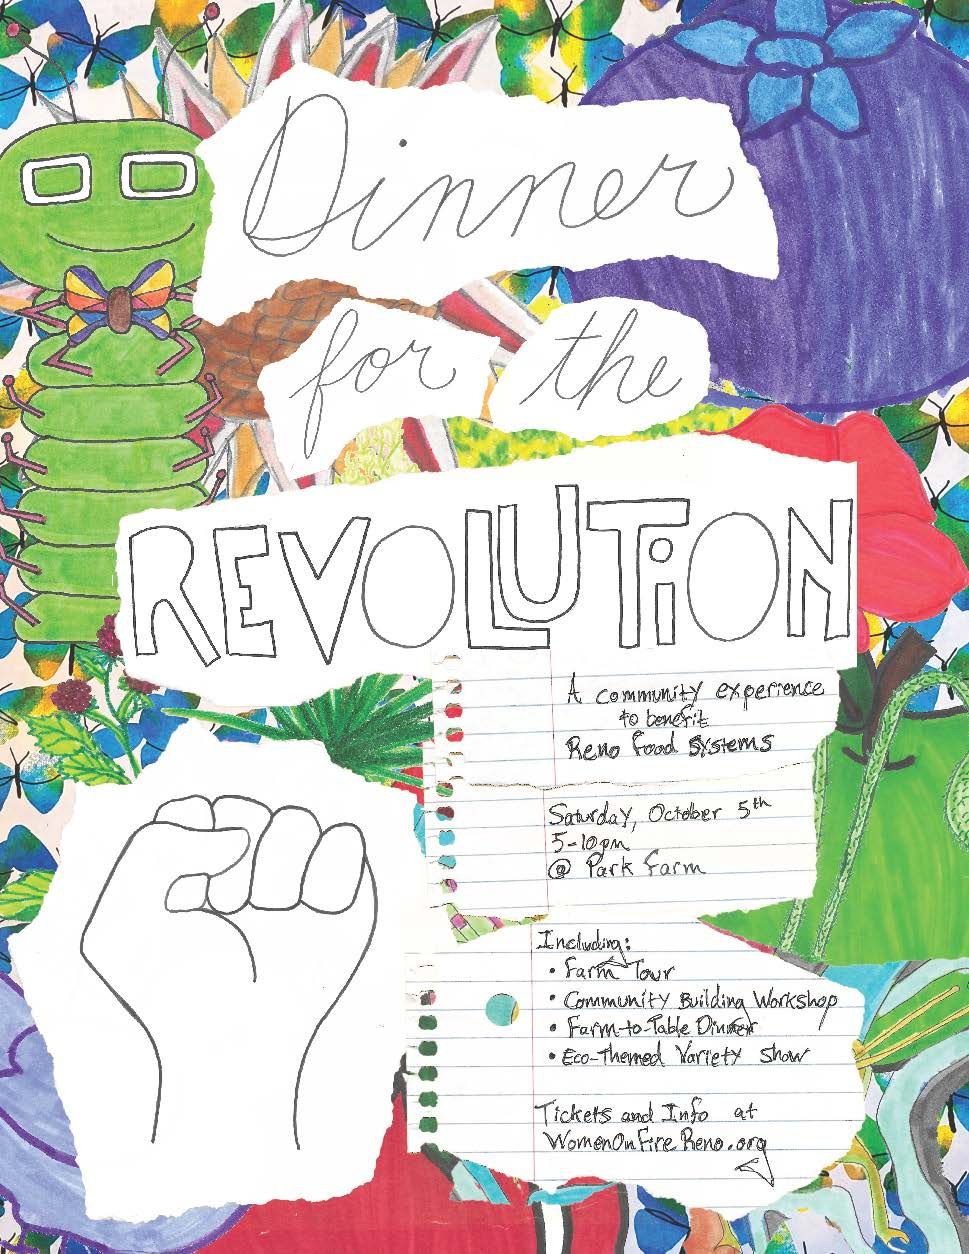 Dinner
for the
REVOLUTiON
A community experience
to benefit
Reno Food Systems
Saturday, October 5th
5-10pm
@ Park Farm
Including:
• Farm Tour
• Community Building Workshop
• Farm-to-Table Dinner
• Eco-Themed Variety Show
Tickets and Info at
WomenOnFireReno.org